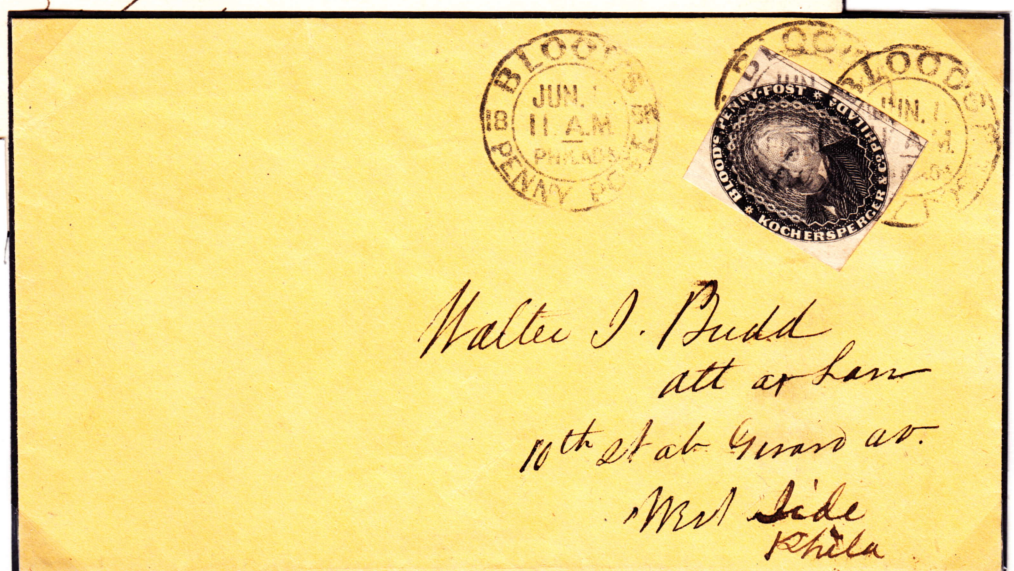 BLOOD'S PENNY POST
18
JUN.
11 A.M
PHILADA
BLOOD'S PENNY-POST * PHILADA *
KOCHERSPERGER & CO *
BLOOD'S
JUN. 1.
A.M.
Walter J. Budd
att at Law
10th St ab Girard av.
West Side
Phila